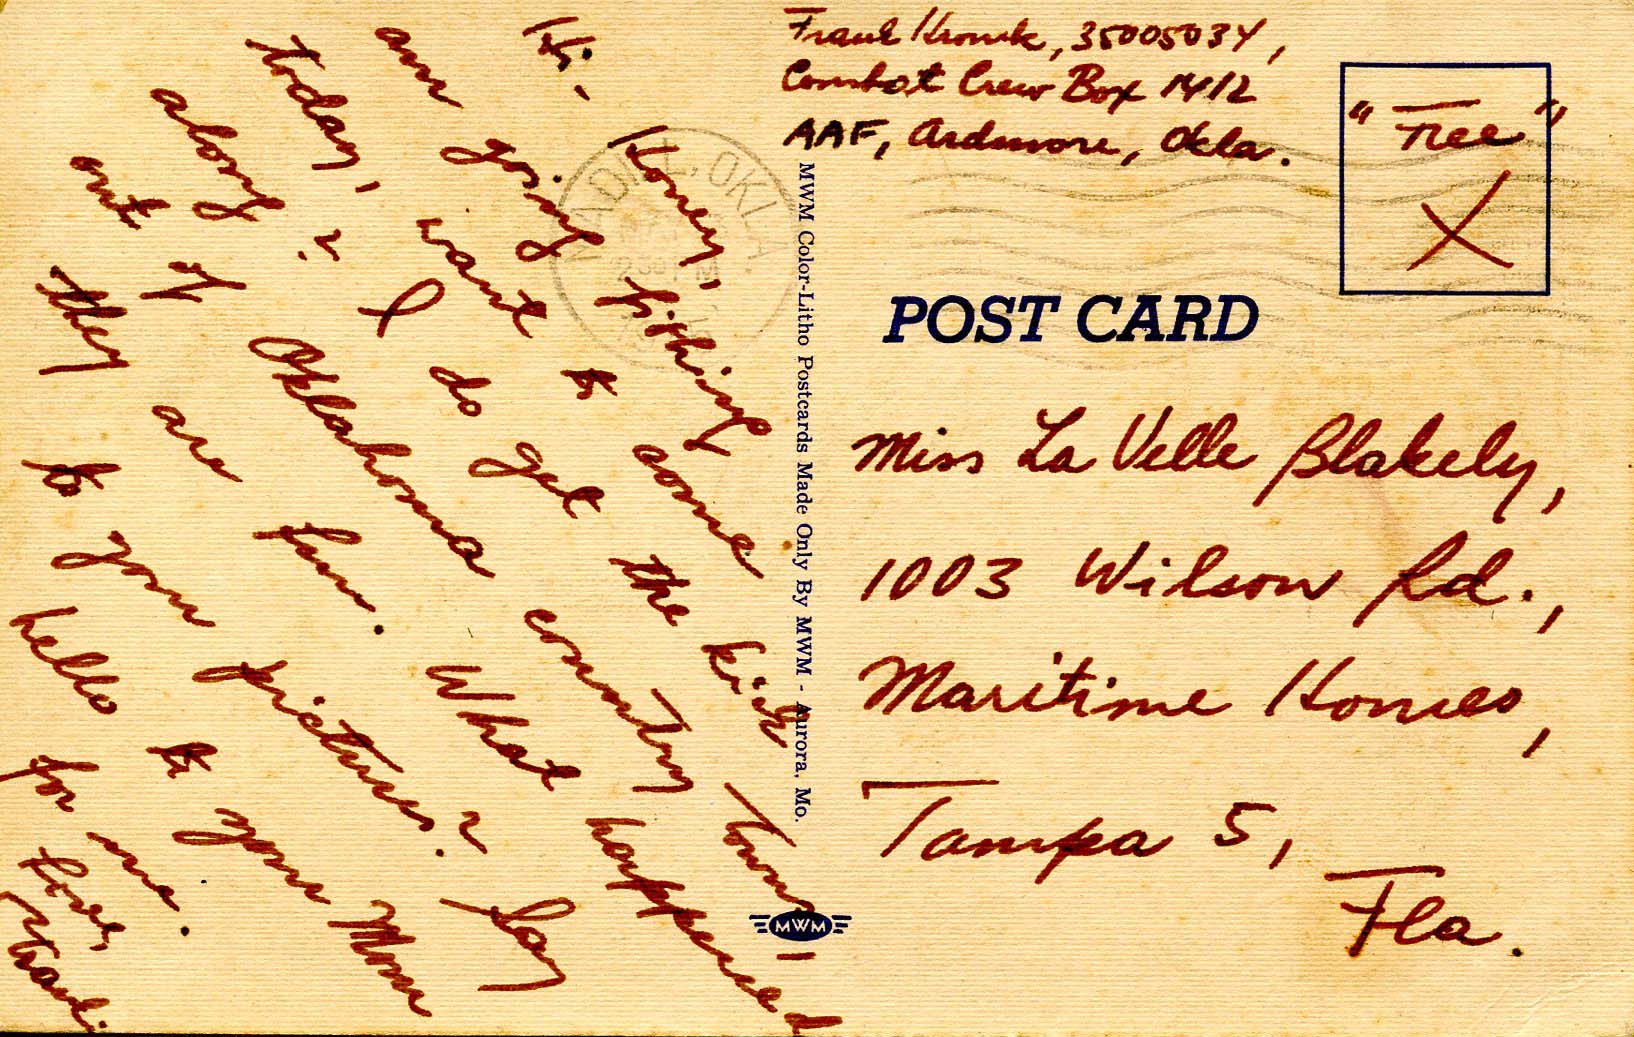 Hi-
Honey,
am going fishing
today, want to come
along? I do get the kick
out of Oklahoma country towns,
they are fun. What happened
to your pictures? Say
hello to your Mom
for me.
Love,
Frank
MADILL, OKLA.
MWM Color-Litho Postcards Made Only By MWM - Aurora, Mo.
MWM
Frank 35005034,
Combat Crew Box 1412
AAF, Ardmore, Okla.
"Free"
X
POST CARD
Miss La Velle Blakely,
1003 Wilson Rd.,
Maritime Homes,
Tampa 5,
Fla.